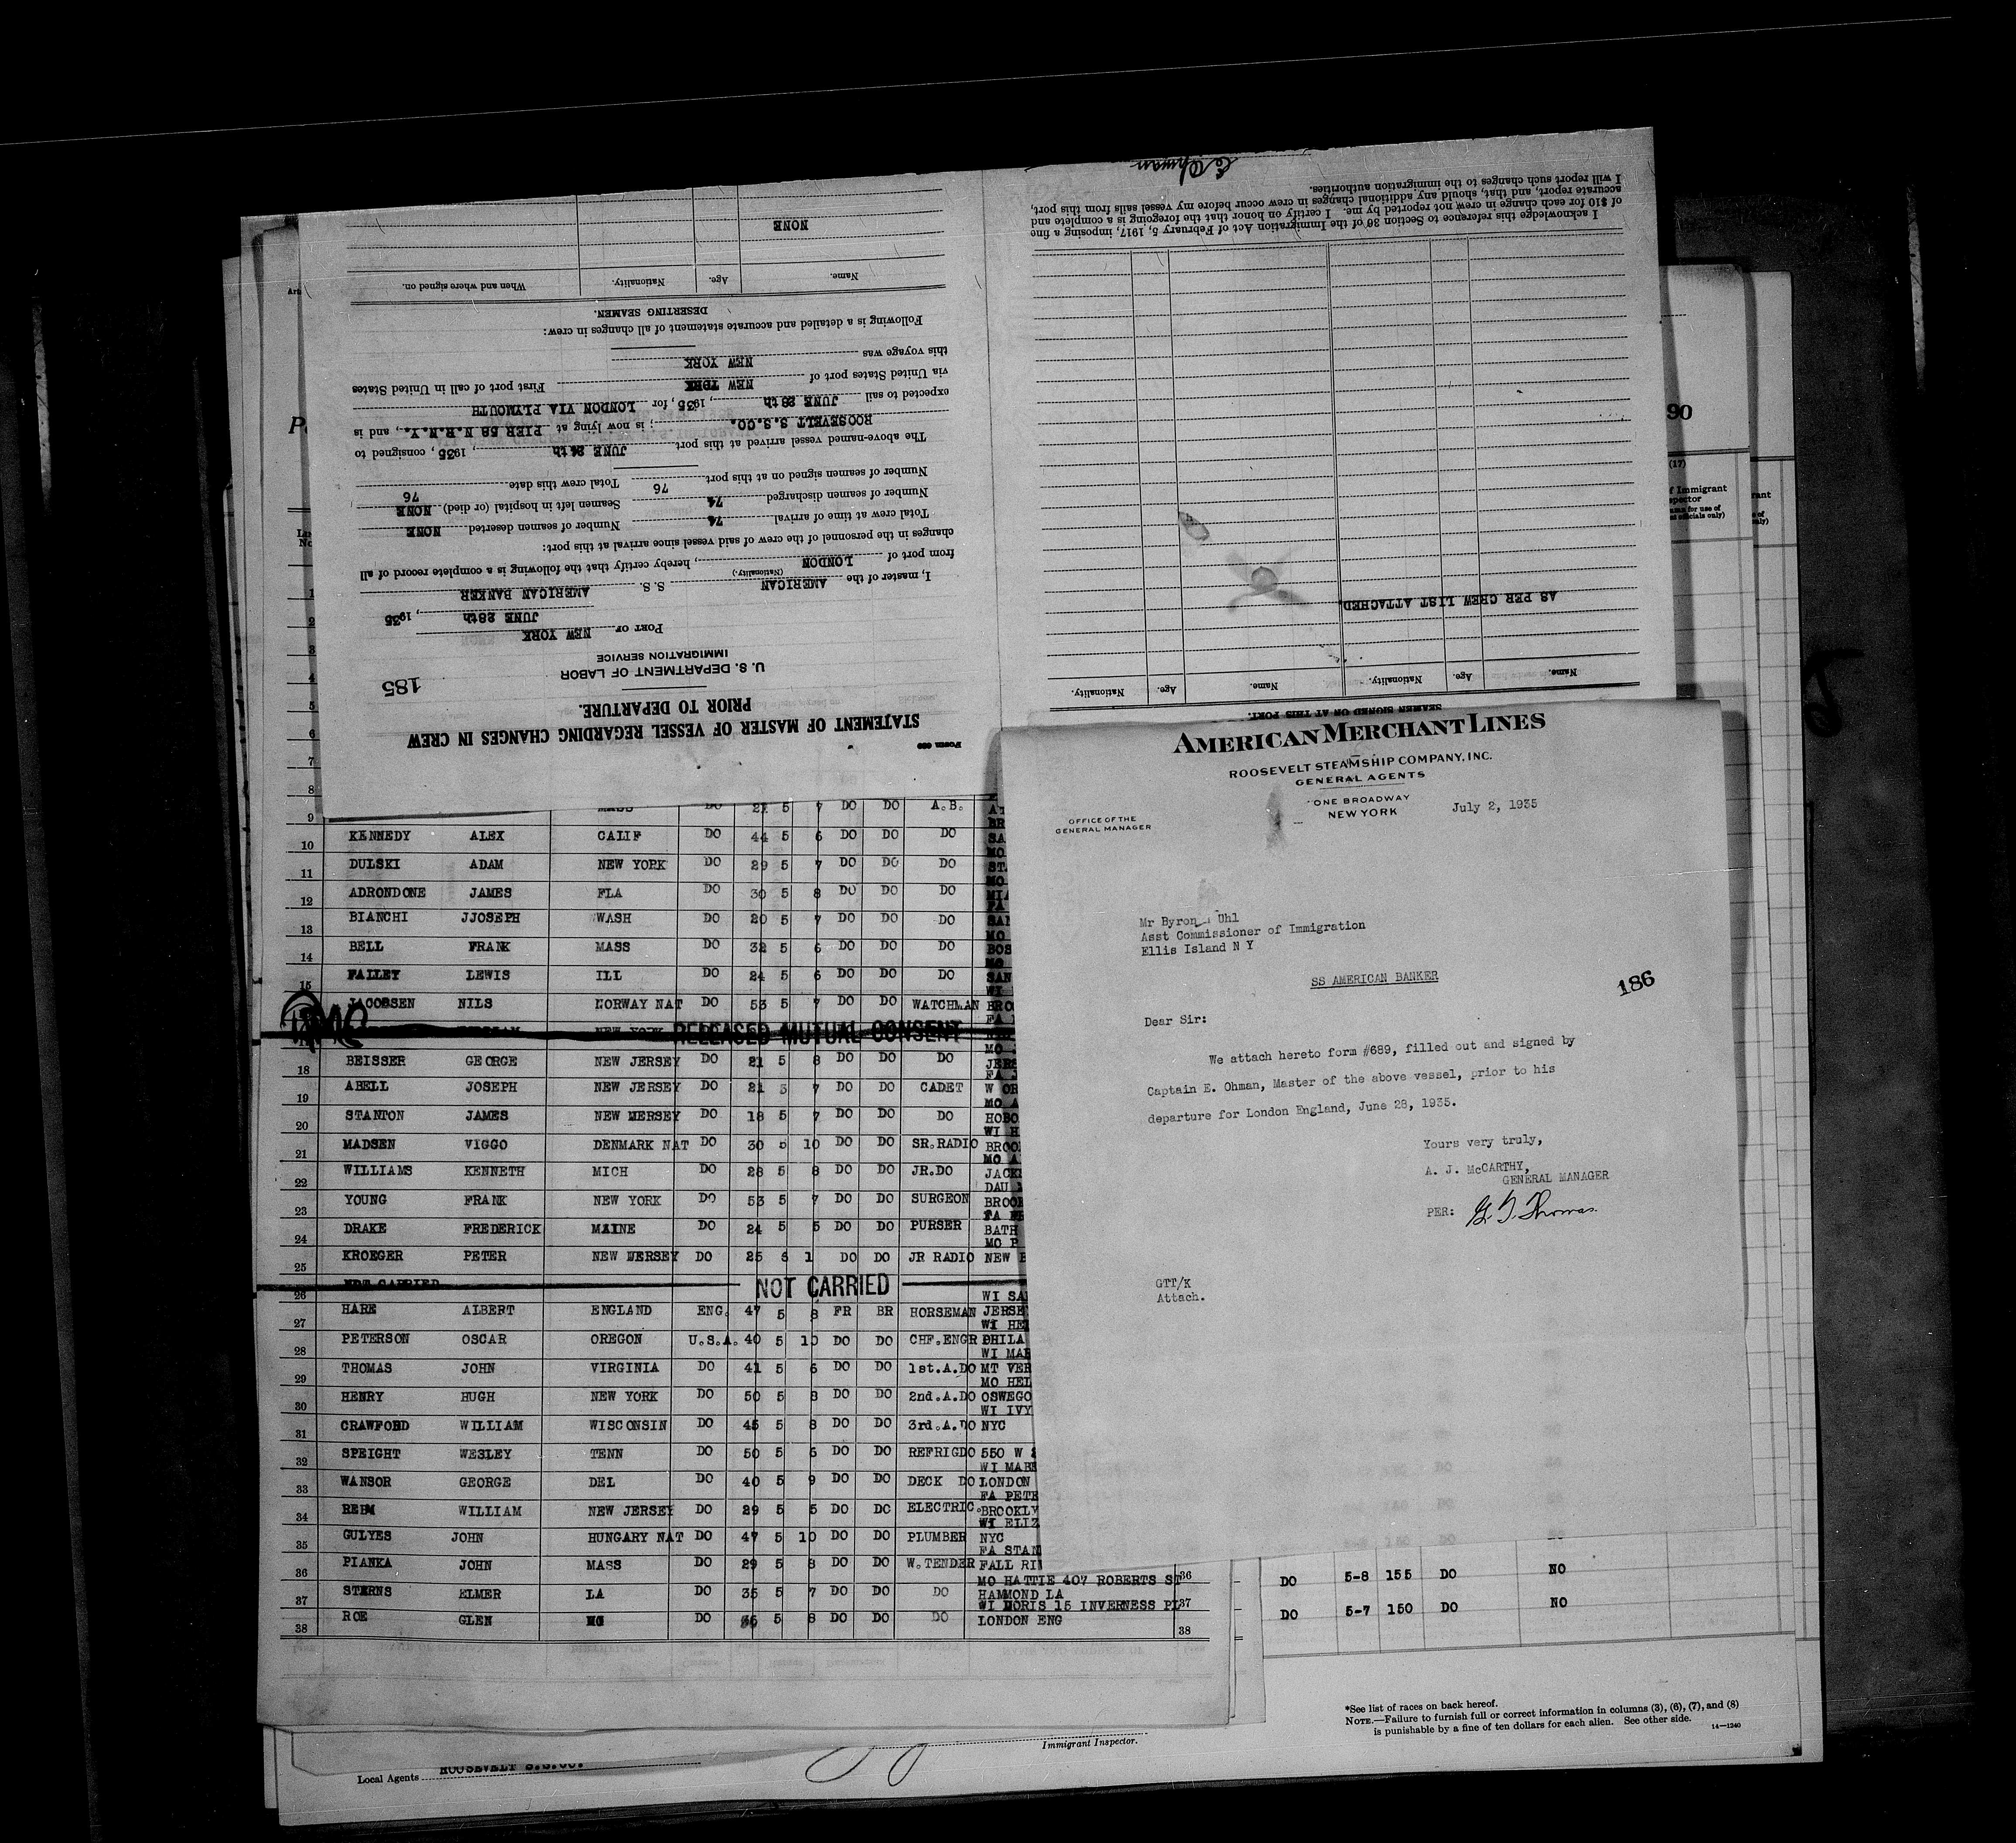 STATEMENT OF MASTER OF VESSEL REGARDING CHANGES IN CREW
PRIOR TO DEPARTURE.
185
U. S. DEPARTMENT OF LABOR
IMMIGRATION SERVICE
PORT OF NEW YORK
JUNE 28th, 1935
I, master of the AMERICAN S. S. AMERICAN BANKER
(Nationality.)
from port of LONDON, hereby certify that the following is a complete record of all
changes in the personnel of the crew of said vessel since arrival at this port:
Total crew at time of arrival 74 Number of seamen deserted NONE
Number of seamen discharged 74 Seamen left in hospital (or died) NONE
Number of seamen signed on at this port 76 Total crew this date 76
The above-named vessel arrived at this port JUNE 24th, 1935, consigned to
ROOSEVELT S.S.CO. ; is now lying at PIER 58 N.R.N.Y., and is
expected to sail JUNE 28th, 1935, for LONDON VIA PLYMOUTH
via United States port of NEW YORK First port of call in United States
this voyage was NEW YORK
Following is a detailed and accurate statement of all changes in crew:
DESERTING SEAMEN.
Name. Age. Nationality. When and where signed on.
NONE
SEAMEN SIGNED ON AT THIS PORT.
Name. Age. Nationality. Name. Age. Nationality.
AS PER CREW LIST ATTACHED
I acknowledge this reference to Section 36 of the Immigration Act of February 5, 1917, imposing a fine
of $10 for each change in crew not reported by me. I certify on honor that the foregoing is a complete and
accurate report, and that, should any additional changes in crew occur before my vessel sails from this port,
I will report such changes to the immigration authorities.
E Ohman
AMERICAN MERCHANT LINES
ROOSEVELT STEAMSHIP COMPANY, INC.
GENERAL AGENTS
ONE BROADWAY
NEW YORK
July 2, 1935
OFFICE OF THE
GENERAL MANAGER
Mr Byron Uhl
Asst Commissioner of Immigration
Ellis Island N Y
SS AMERICAN BANKER
186
Dear Sir:
We attach hereto form #689, filled out and signed by
Captain E. Ohman, Master of the above vessel, prior to his
departure for London England, June 28, 1935.
Yours very truly,
A. J. McCARTHY,
GENERAL MANAGER
PER: G. T. Thomas.
GTT/K
Attach.
10 KENNEDY ALEX CALIF DO 44 5 6 DO DO DO
11 DULSKI ADAM NEW YORK DO 29 5 7 DO DO DO
12 ADRONDONE JAMES FLA DO 30 5 8 DO DO DO
13 BIANCHI JJOSEPH WASH DO 20 5 7 DO DO DO
14 BELL FRANK MASS DO 32 5 6 DO DO DO
15 FALLEY LEWIS ILL DO 24 5 6 DO DO DO
JACOBSEN NILS NORWAY NAT DO 53 5 7 DO DO WATCHMAN
RELEASED MUTUAL CONSENT
18 BEISSER GEORGE NEW JERSEY DO 21 5 8 DO DO DO
19 ABELL JOSEPH NEW JERSEY DO 21 5 7 DO DO CADET
20 STANTON JAMES NEW MERSEY DO 18 5 7 DO DO DO
21 MADSEN VIGGO DENMARK NAT DO 30 5 10 DO DO SR.RADIO
22 WILLIAMS KENNETH MICH DO 28 5 8 DO DO JR.DO
23 YOUNG FRANK NEW YORK DO 53 5 7 DO DO SURGEON
24 DRAKE FREDERICK MAINE DO 24 5 5 DO DO PURSER BATH
25 KROEGER PETER NEW MERSEY DO 25 1 DO DO JR RADIO
26 NOT CARRIED
27 HARE ALBERT ENGLAND ENG. 47 5 8 FR BR HORSEMAN
28 PETERSON OSCAR OREGON U.S.A. 40 5 10 DO DO CHF.ENGR PHILA
29 THOMAS JOHN VIRGINIA DO 41 5 6 DO DO 1st.A.DO MT VER
30 HENRY HUGH NEW YORK DO 50 5 8 DO DO 2nd.A.DO OSWEGO
WI IVY
31 CRAWFORD WILLIAM WISCONSIN DO 45 5 8 DO DO 3rd.A.DO NYC
32 SPEIGHT WESLEY TENN DO 50 5 6 DO DO REFRIGDO 550 W
33 WANSOR GEORGE DEL DO 40 5 9 DO DO DECK DO LONDON
34 REHM WILLIAM NEW JERSEY DO 29 5 5 DO DO ELECTRIC. BROOKLY
WI ELIZ
35 GULYES JOHN HUNGARY NAT DO 47 5 10 DO DO PLUMBER NYC
FA STAN
36 PIANKA JOHN MASS DO 29 5 8 DO DO W.TENDER FALL RI
MO HATTIE 407 ROBERTS ST 36
37 STERNS ELMER LA DO 35 5 7 DO DO DO HAMMOND LA
WI DORIS 15 INVERNESS PL 37
38 ROE GLEN MO DO 36 5 8 DO DO DO LONDON ENG 38
DO 5-8 155 DO NO
DO 5-7 150 DO NO
*See list of races on back hereof.
NOTE.—Failure to furnish full or correct information in columns (3), (6), (7), and (8)
is punishable by a fine of ten dollars for each alien. See other side. 14—1240
Immigrant Inspector.
Local Agents ROOSEVELT S.S.CO.
90
(17)